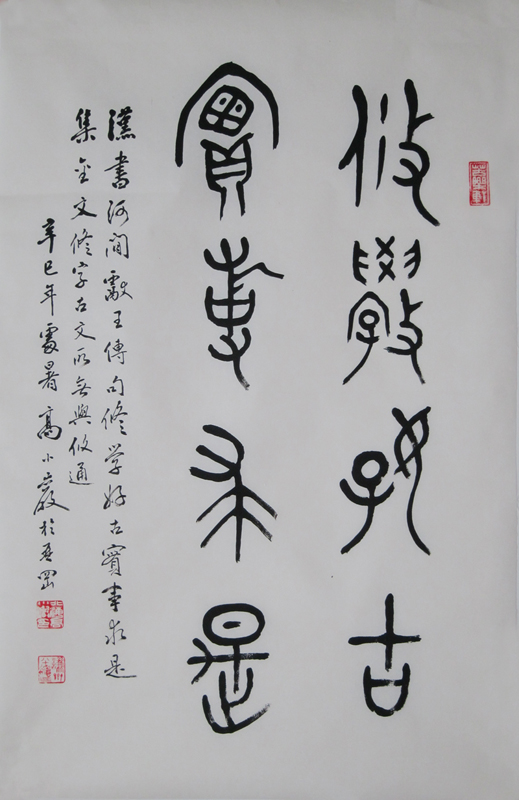 攸學好古
實事求是
漢書河間獻王傳句修學好古實事求是
集金文修字古文所無與攸通
辛巳年處暑高小嚴於